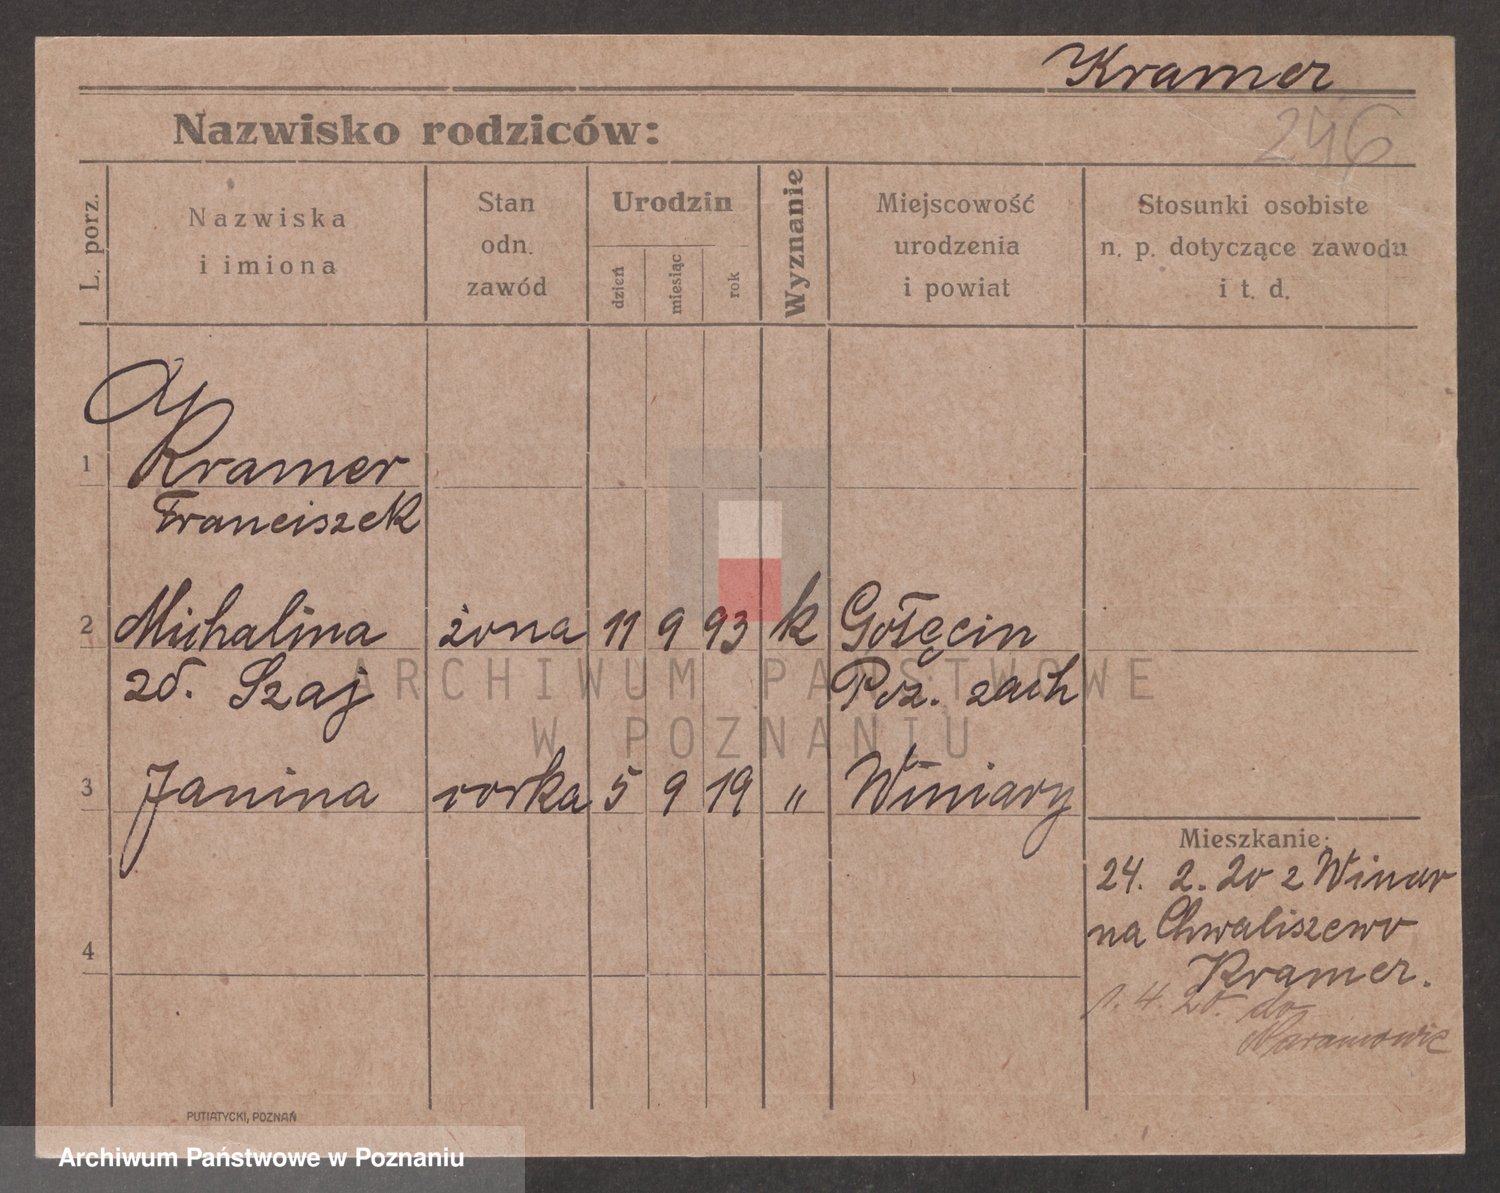 Kramer
246
Nazwisko rodziców:
L. porz.
Nazwiska
i imiona
Stan
odn.
zawód
Urodzin
dzień
miesiąc
rok
Wyznanie
Miejscowość
urodzenia
i powiat
Stosunki osobiste
n. p. dotyczące zawodu
i t. d.
1 Kramer
Franciszek
2 Michalina żona 11 9 93 k Gołęcin
zd. Szaj Poz. zach
ARCHIWUM PAŃSTWOWE
W POZNANIU
3 Janina corka 5 9 19 " Winiary
Mieszkanie:
24. 2. 20 z Winar
na Chwaliszewo
4
Kramer.
1. 4. 20. do
Naramowic
PUTIATYCKI, POZNAŃ
Archiwum Państwowe w Poznaniu